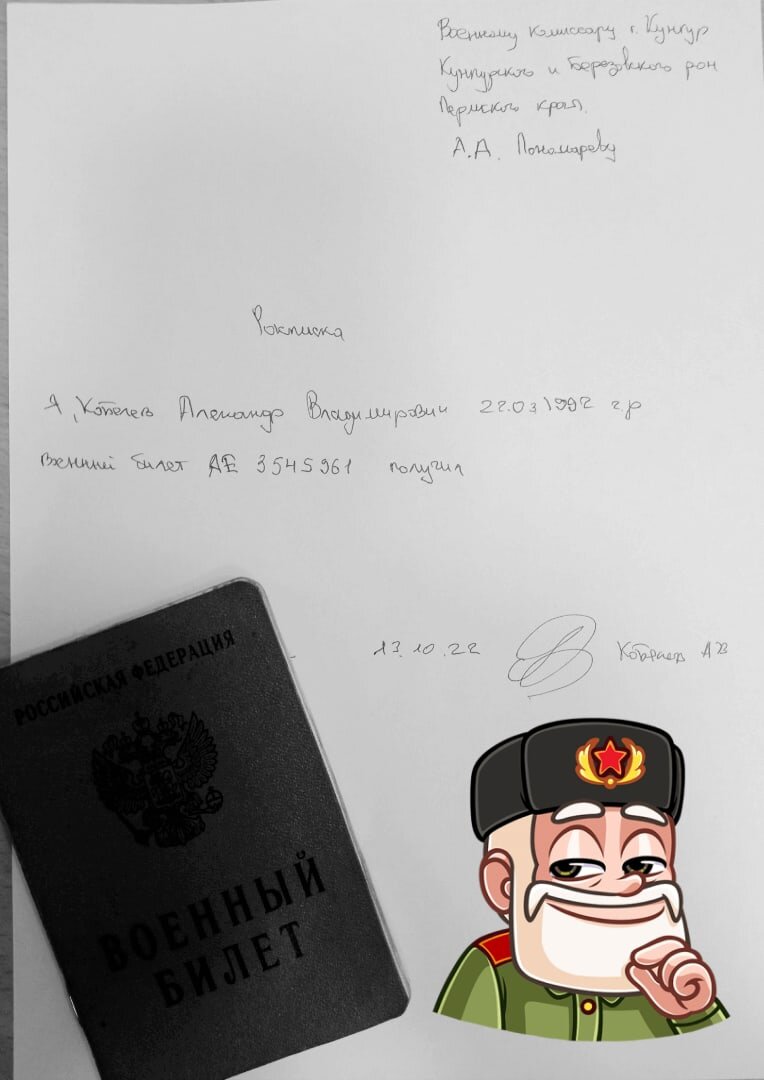 Военному комиссару г. Кунгур
Кунгурского и Березовского рон
Пермского края.
А.Д. Пономареву
Расписка
Я, Александр Владимирович 22.03 1992 г.р
военный билет АЕ 3545961 получил
13.10.22 АВ
РОССИЙСКАЯ ФЕДЕРАЦИЯ
ВОЕННЫЙ
БИЛЕТ